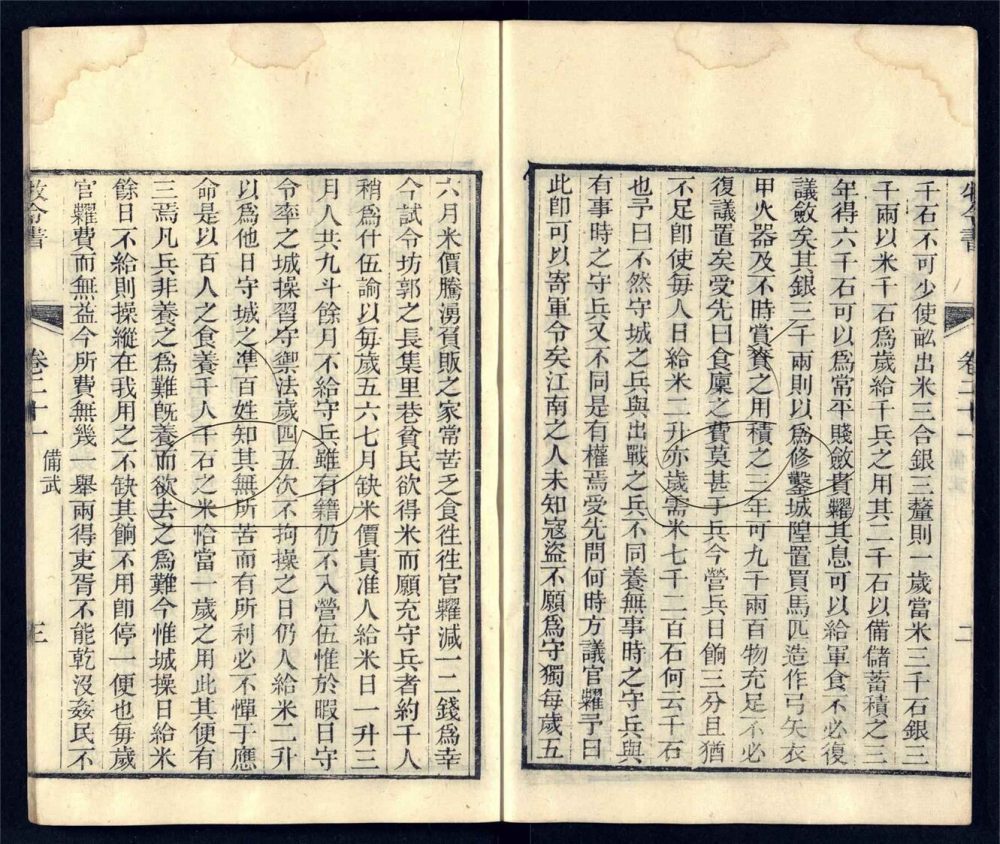 牧令書
卷二十一
備武
二
千石不可少使畝出米三合銀三釐則一歲當米三千石銀三
千兩以米千石爲歲給千兵之用其二千石以備儲蓄積之三
年得六千石可以爲常平賤斂貴糶其息可以給軍食不必復
議斂矣其銀三千兩則以爲修鑿城隍置買馬匹造作弓矢衣
甲火器及不時賞賚之用積之三年可九千兩百物充足不必
復議置矣受先曰食廩之費莫甚于兵今營兵日餉三分且猶
不足卽使每人日給米二升亦歲需米七千二百石何云千石
也予曰不然守城之兵與出戰之兵不同養無事時之守兵與
有事時之守兵又不同是有權焉受先問何時方議官糶予曰
此卽可以寄軍令矣江南之人未知寇盜不願爲守獨每歲五
六月米價騰湧負販之家常苦乏食往往官糶減一二錢爲幸
今試令坊郭之長集里巷貧民欲得米而願充守兵者約千人
稍爲什伍諭以每歲五六七月缺米價貴准人給米日一升三
月人共九斗餘月不給守兵雖有籍仍不入營伍惟於暇日守
令率之城操習守禦法歲四五次不拘操之日仍人給米二升
以爲他日守城之準百姓知其無所苦而有所利必不憚于應
命是以百人之食養千人千石之米恰當一歲之用此其便有
三焉凡兵非養之爲難旣養而欲去之爲難今惟城操日給米
餘日不給則操縱在我用之不缺其餉不用卽停一便也每歲
官糶費而無益今所費無幾一舉兩得吏胥不能乾沒姦民不
牧令書
卷二十一
備武
三